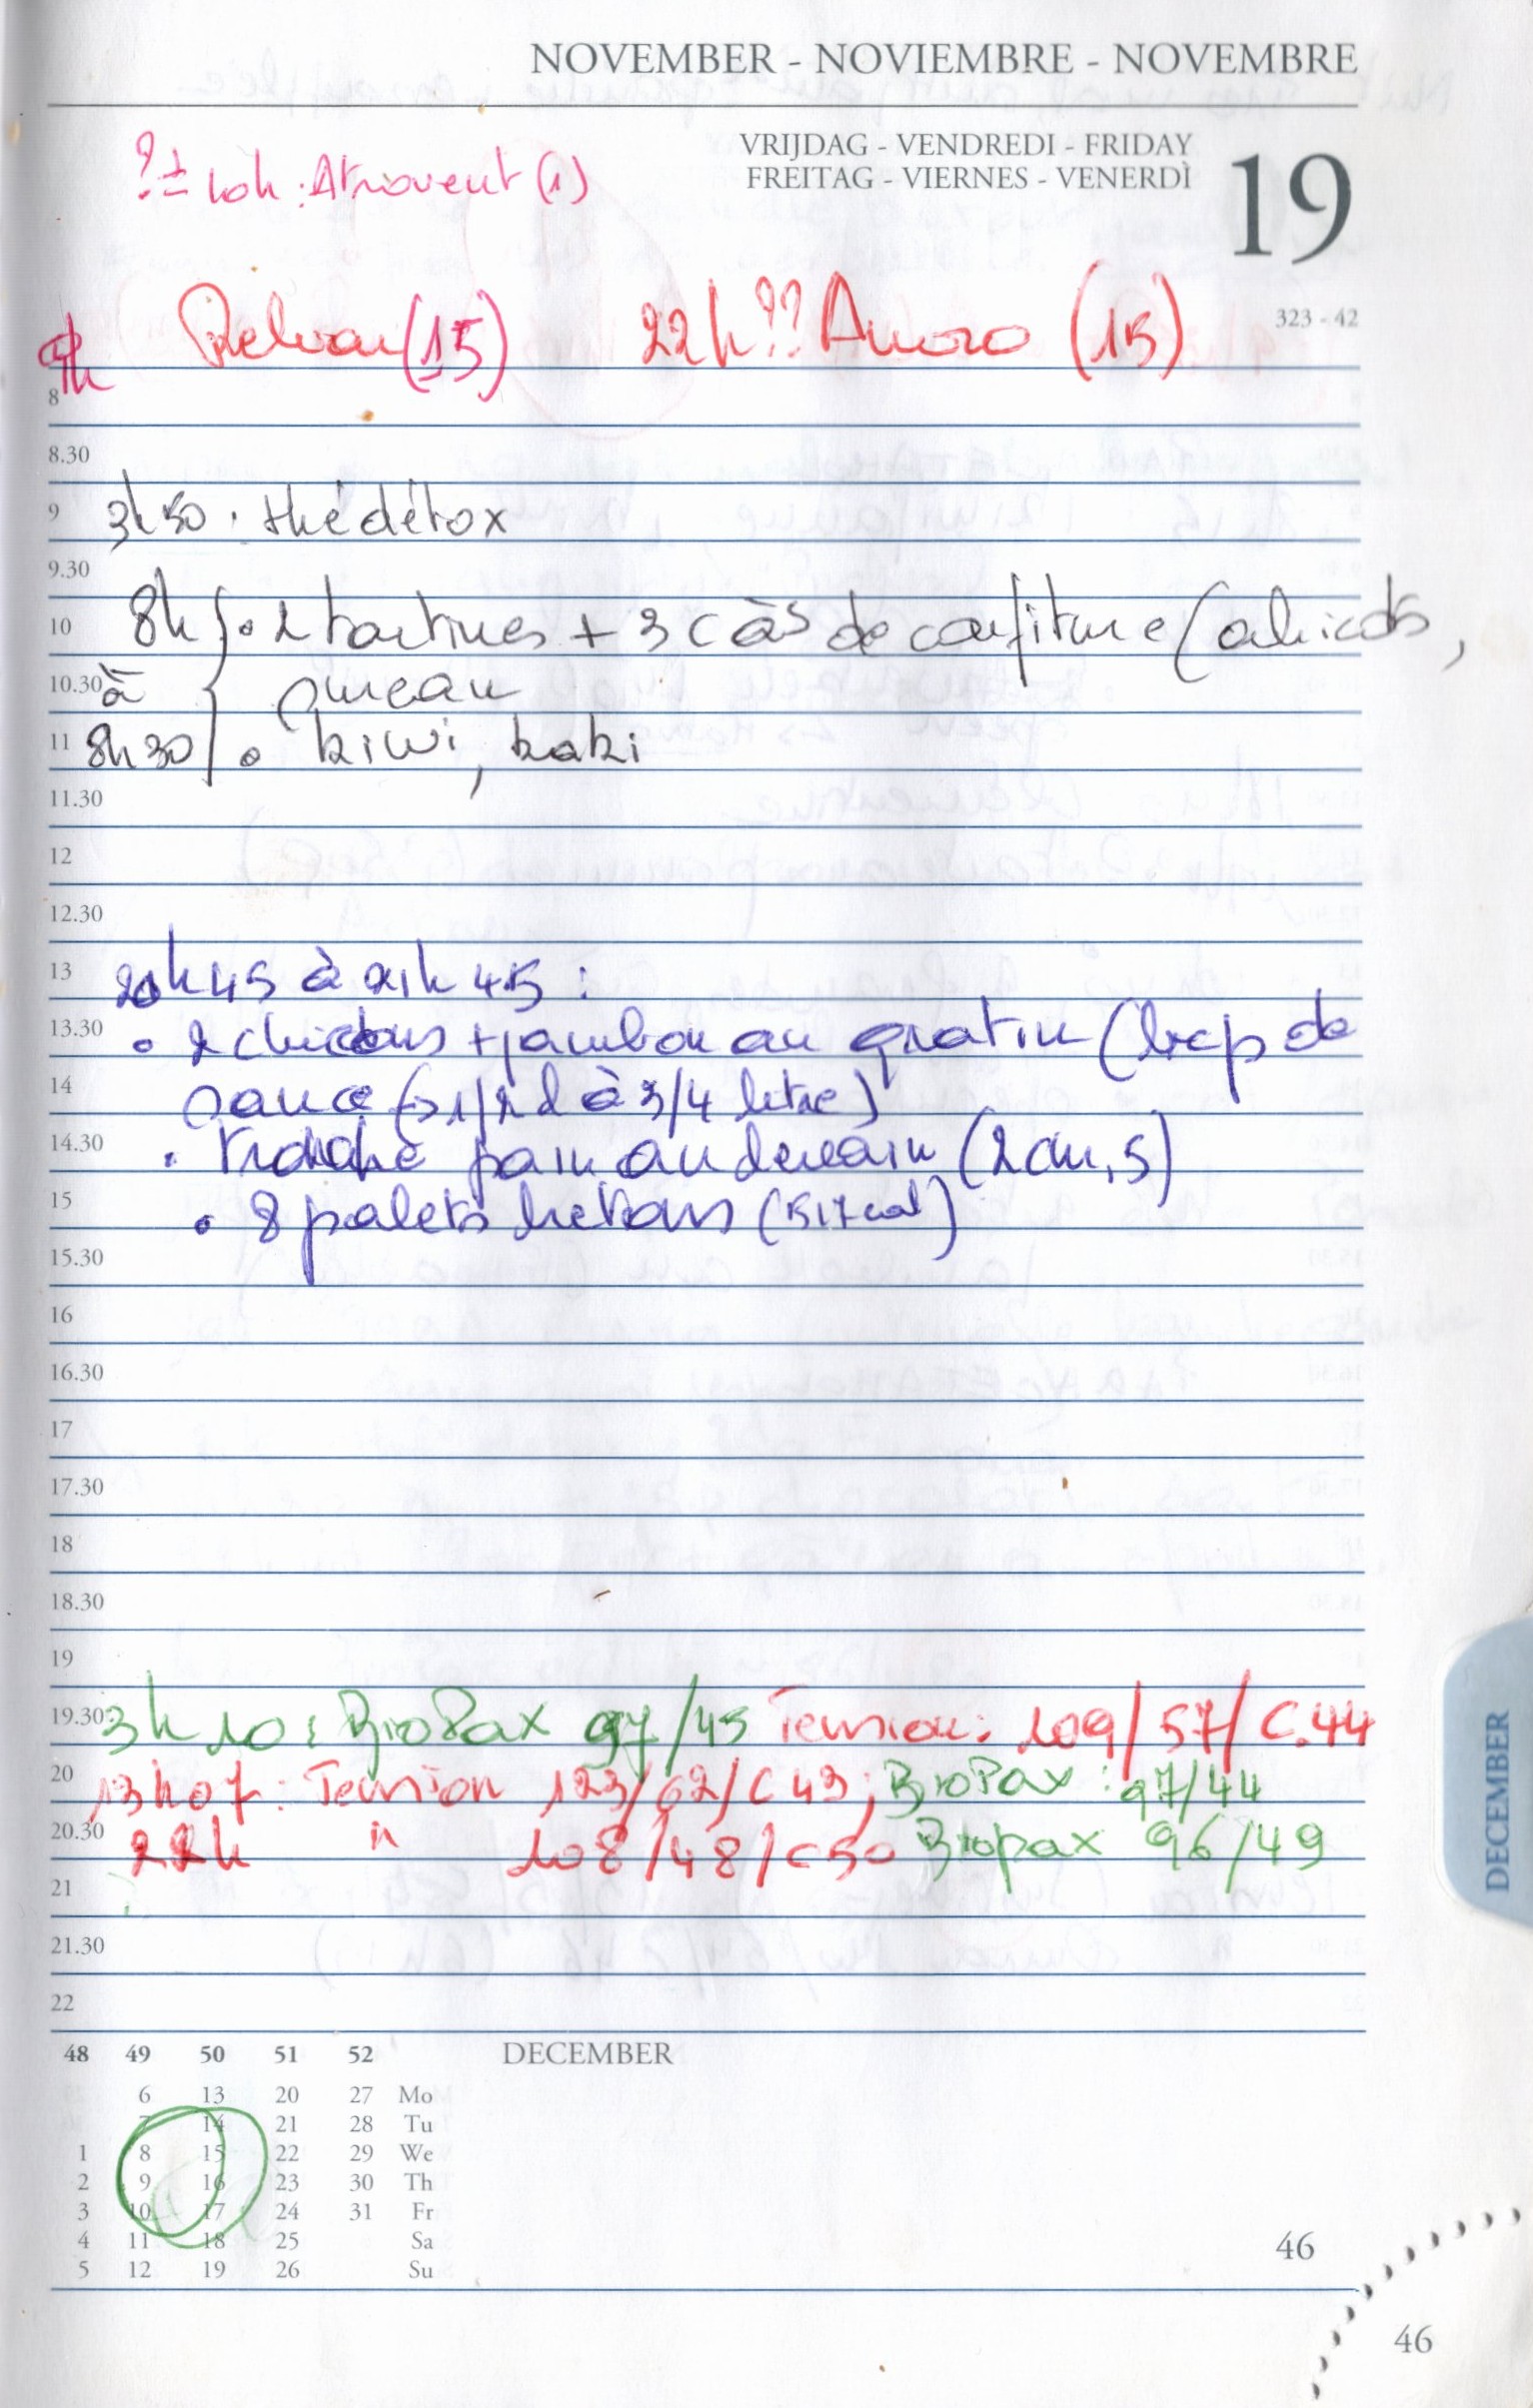 NOVEMBER - NOVIEMBRE - NOVEMBRE
VRIJDAG - VENDREDI - FRIDAY
FREITAG - VIERNES - VENERDÌ
19
?± 10h : Atrovent (1)
323 - 42
Relvar (15) 22h?? Anoro (15)
8
8.30
9 3h50 : thé détox
9.30
10 8h • 2 tartines + 3 c às de confiture (abricots,
10.30 à pruneau
11 8h30 • kiwi, kaki
11.30
12
12.30
13 20h45 à 21h45 :
13.30 • 2 chicons + jambon au gratin (bcp de
14 sauce (→ 1/2 l à 3/4 litre)
14.30 • tranche pain au levain (2cm,5)
15 • 8 palets bretons (517cal)
15.30
16
16.30
17
17.30
18
18.30
19
19.30 3h10 : BioPax 97/45 Tension : 109/57/C.44
20 13h07 : Tension 123/62/C43; BioPax : 97/44
20.30 22h " 108/48/C50 Biopax 96/49
21
21.30
22
48 49 50 51 52 DECEMBER
6 13 20 27 Mo
7 14 21 28 Tu
1 8 15 22 29 We
2 9 16 23 30 Th
3 10 17 24 31 Fr
4 11 18 25 Sa
5 12 19 26 Su
46
46
DECEMBER